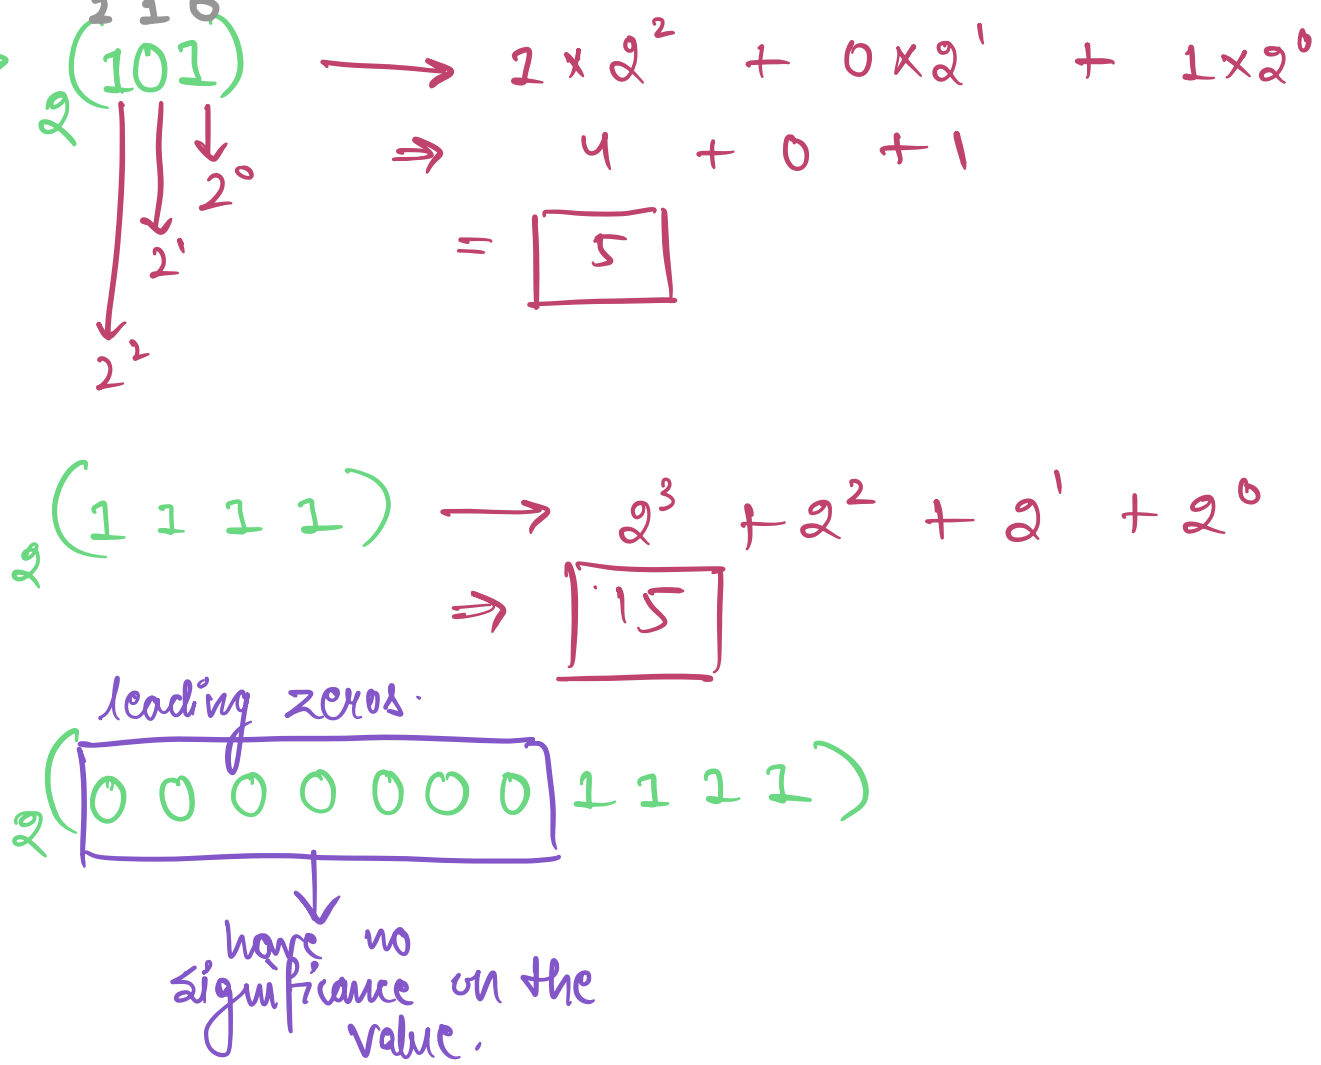 2 1 0
2(101) → 1 × 2² + 0 × 2¹ + 1 × 2⁰
⇒ 4 + 0 + 1
2⁰
= 5
2¹
2²
2(1 1 1 1) → 2³ + 2² + 2¹ + 2⁰
⇒ 15
leading zeros.
2(0 0 0 0 0 0 0 1 1 1 1)
have no
significance on the
value.